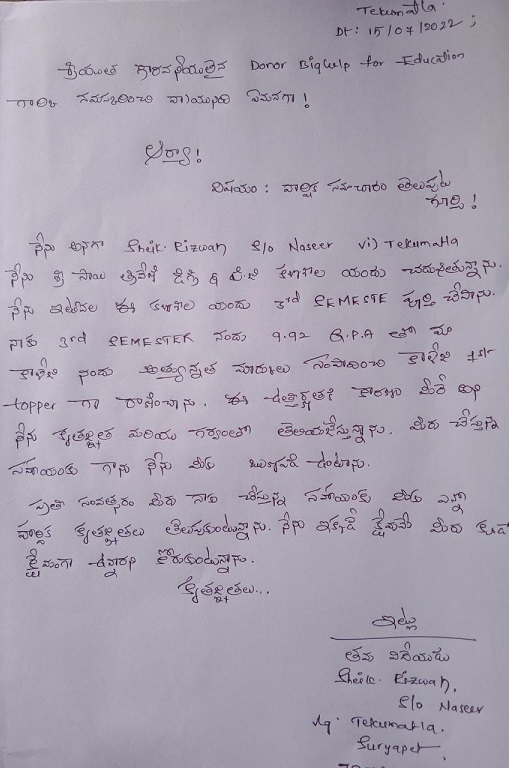 Tekumatla.
Dt: 15/07/2022;
శ్రీయుత గౌరవనీయులైన Donor BigHelp for Education
గారికి నమస్కరించి వ్రాయునది ఏమనగా!
ఆర్యా!
విషయం: వార్షిక సమాచారం తెలుపుట
గూర్చి!
నేను అనగా Sheik. Rizwan S/o Naseer vi) Tekumatla
నేను శ్రీ సాయి త్రివేణి డిగ్రీ & పి.జి కళాశాల యందు చదువుతున్నాను.
నేను ఇటీవల ఈ కళాశాల యందు 3rd SEMESTE పూర్తి చేసాను.
నాకు 3rd SEMESTER నందు 9.92 G.P.A తో మా
కాలేజి నందు అత్యున్నత మార్కులు సంపాదించి కాలేజి 1st
topper గా రాణించాను. ఈ ఉత్తీర్ణతకి కారణం మీరే అని
నేను కృతజ్ఞత మరియు గర్వంతో తెలియజేస్తున్నాను. మీరు చేస్తున్న
సహాయంకు గాను నేను మీకు ఋణపడి ఉంటాను.
ప్రతి సంవత్సరం మీరు నాకు చేస్తున్న సహాయంకు మీకు ఎన్నో
హార్దిక కృతజ్ఞతలు తెలుపుకుంటున్నాను. నేను ఇక్కడ క్షేమమే మీరు కూడ
క్షేమంగా ఉన్నారని కోరుకుంటున్నాను.
కృతజ్ఞతలు...
ఇట్లు
తమ విధేయుడు
Sheik. Rizwan,
S/o Naseer
Vg: Tekumatla.
Suryapet,